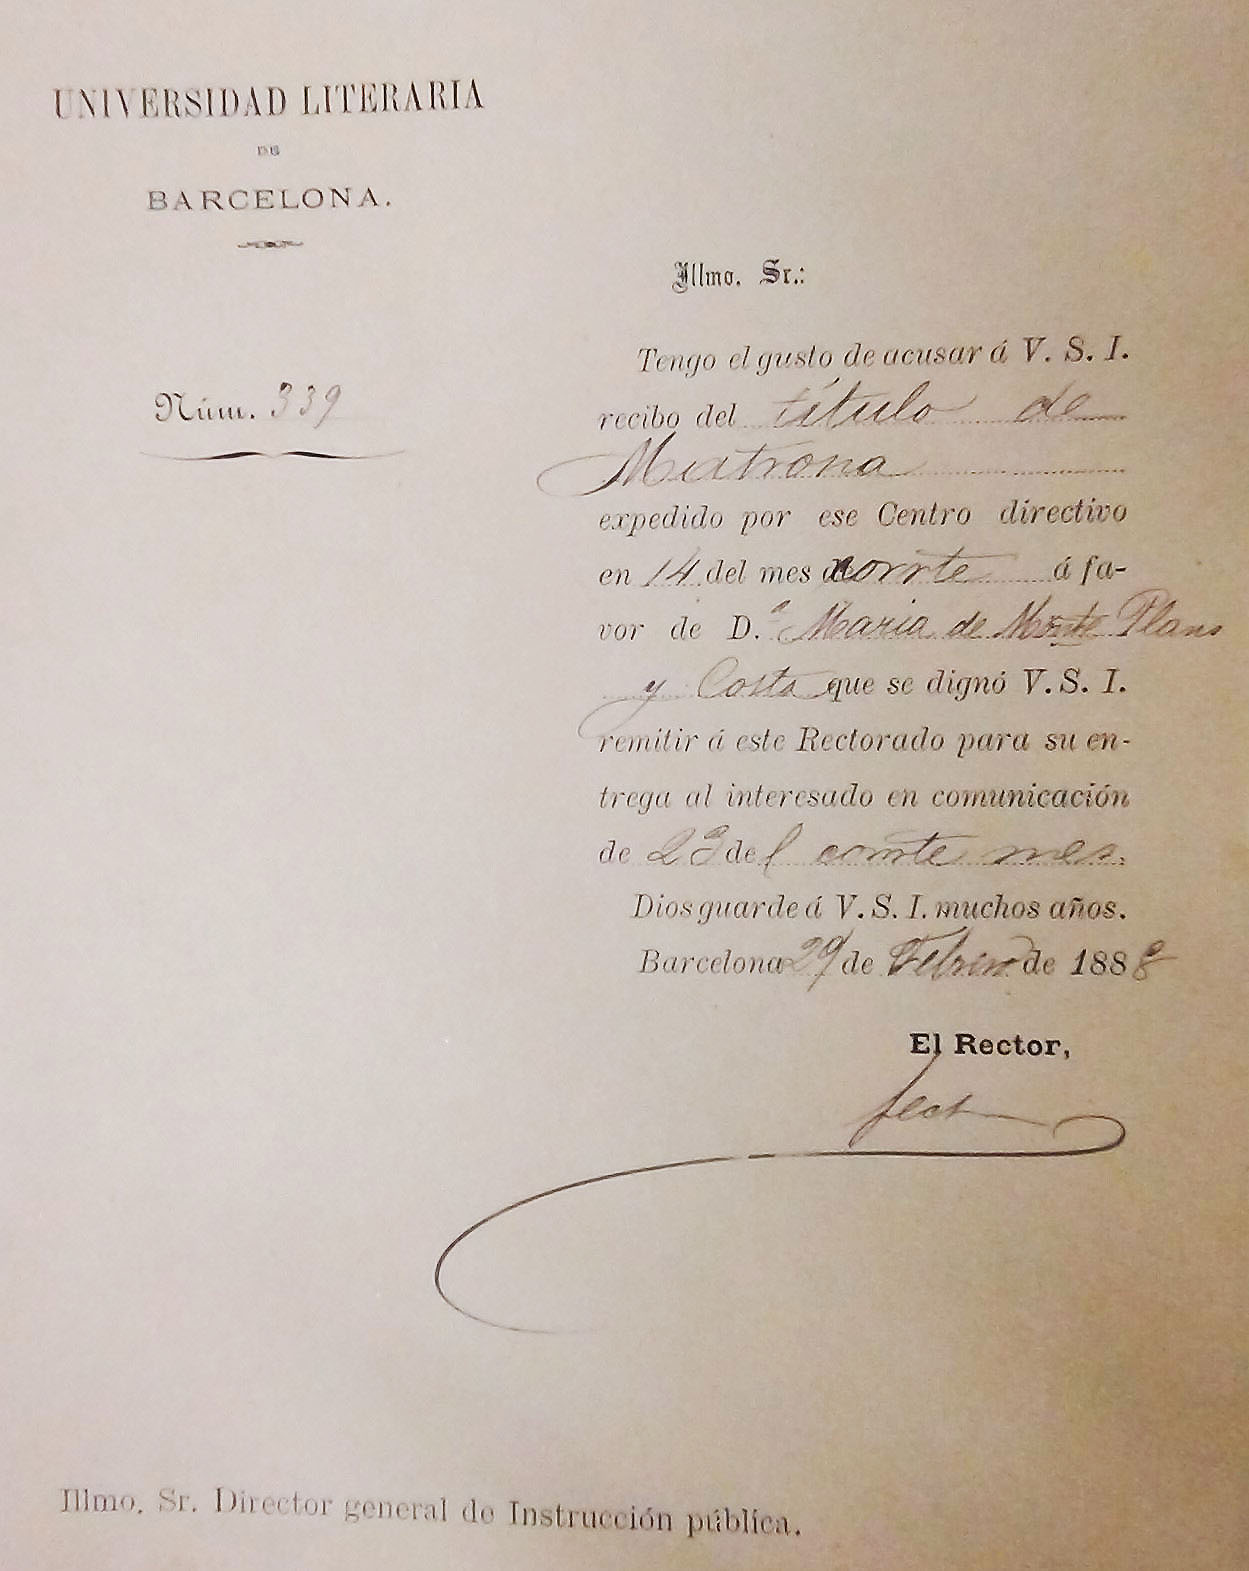 UNIVERSIDAD LITERARIA
DE
BARCELONA.
Illmo. Sr.:
Núm. 339
Tengo el gusto de acusar á V. S. I.
recibo del título de
Matrona
expedido por ese Centro directivo
en 14 del mes corrte á fa-
vor de D.ª Maria de Monte Plans
y Costa que se dignó V. S. I.
remitir á este Rectorado para su en-
trega al interesado en comunicación
de 23 del corrte mes.
Dios guarde á V. S. I. muchos años.
Barcelona 29 de Febrero de 1888
El Rector,
Illmo. Sr. Director general de Instrucción pública.